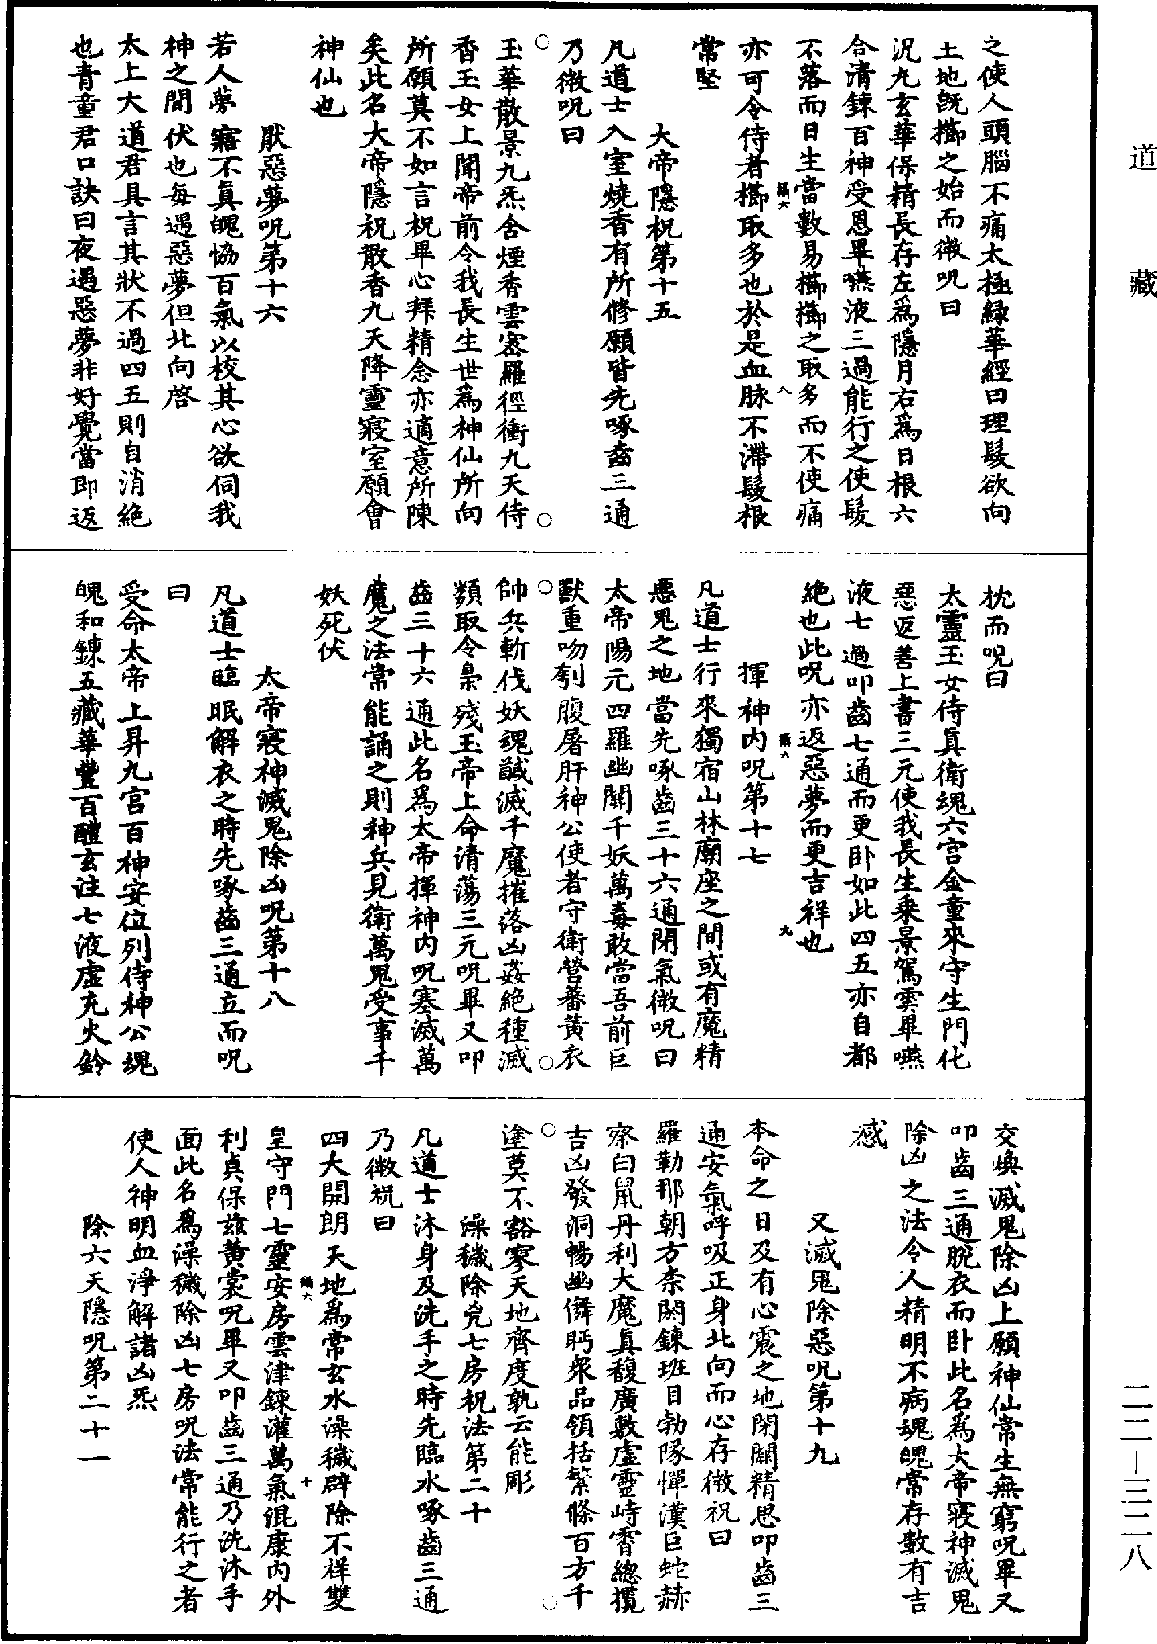 道藏
之使人頭腦不痛太極綠華經曰理髮欲向
土地既櫛之始而微呪曰
泥丸玄華保精長存左爲隱月右爲日根六
合清鍊百神受恩畢嚥液三過能行之使髮
不落而日生當數易櫛櫛之取多而不使痛
亦可令侍者櫛取多也於是血脉不滯髮根
常堅
大帝隱祝第十五
凡道士入室燒香有所修願皆先啄齒三通
乃微呪曰
玉華散景九炁含煙香雲密羅徑衝九天侍
香玉女上聞帝前令我長生世爲神仙所向
所願莫不如言祝畢心拜精念亦適意所陳
矣此名大帝隱祝散香九天降靈寢室願會
神仙也
厭惡夢呪第十六
若人夢寤不真魄協百氣以校其心欲伺我
神之間伏也每遇惡夢但北向啓
太上大道君具言其狀不過四五則自消絕
也青童君口訣曰夜遇惡夢非好覺當即返
枕而呪曰
太靈玉女侍真衛魂六宮金童來守生門化
惡返善上書三元使我長生乘景駕雲畢嚥
液七過叩齒七通而更卧如此四五亦自都
絶也此呪亦返惡夢而更吉祥也
揮神内呪第十七
凡道士行來獨宿山林廟座之間或有魔精
惡鬼之地當先啄齒三十六通閉氣微呪曰
太帝陽元四羅幽關千妖萬毒敢當吾前巨
獸重吻刳腹屠肝神公使者守衛營蕃黃衣
帥兵斬伐妖魂馘滅千魔摧落凶姦絕種滅
類取令梟殘玉帝上命清蕩三元呪畢又叩
齒三十六通此名爲太帝揮神内呪塞滅萬
魔之法常能誦之則神兵見衛萬鬼受事千
妖死伏
太帝寢神滅鬼除凶呪第十八
凡道士臨眠解衣之時先啄齒三通立而呪
曰
受命太帝上昇九宮百神安位列侍神公魂
魄和鍊五藏華豐百醴玄注七液虛充火鈴
交煥滅鬼除凶上願神仙常生無窮呪畢又
叩齒三通脫衣而卧此名為大帝寢神滅鬼
除凶之法令人精明不病魂魄常存數有吉
感
又滅鬼除惡呪第十九
本命之日及有心震之地閉關精思叩齒三
通安氣呼吸正身北向而心存微祝曰
羅勒那朝方柰閼鍊班目勃隊憚漢巨蛇赫
察白鼠丹利大魔真馥廣敷虛靈峙霄總攬
吉凶發洞暢幽僻眄衆品領括繁條百方千
塗莫不豁寥天地齊度孰云能彫
澡穢除凶七房祝法第二十
凡道士沐身及洗手之時先臨水啄齒三通
乃微祝曰
四大開朗天地爲常玄水澡穢辟除不祥雙
皇守門七靈安房雲津鍊灌萬氣混康内外
利貞保兹黃裳呪畢又叩齒三通乃洗沐手
面此名爲澡穢除凶七房呪法常能行之者
使人神明血淨解諸凶炁
除六天隱呪第二十一
二二—三二八